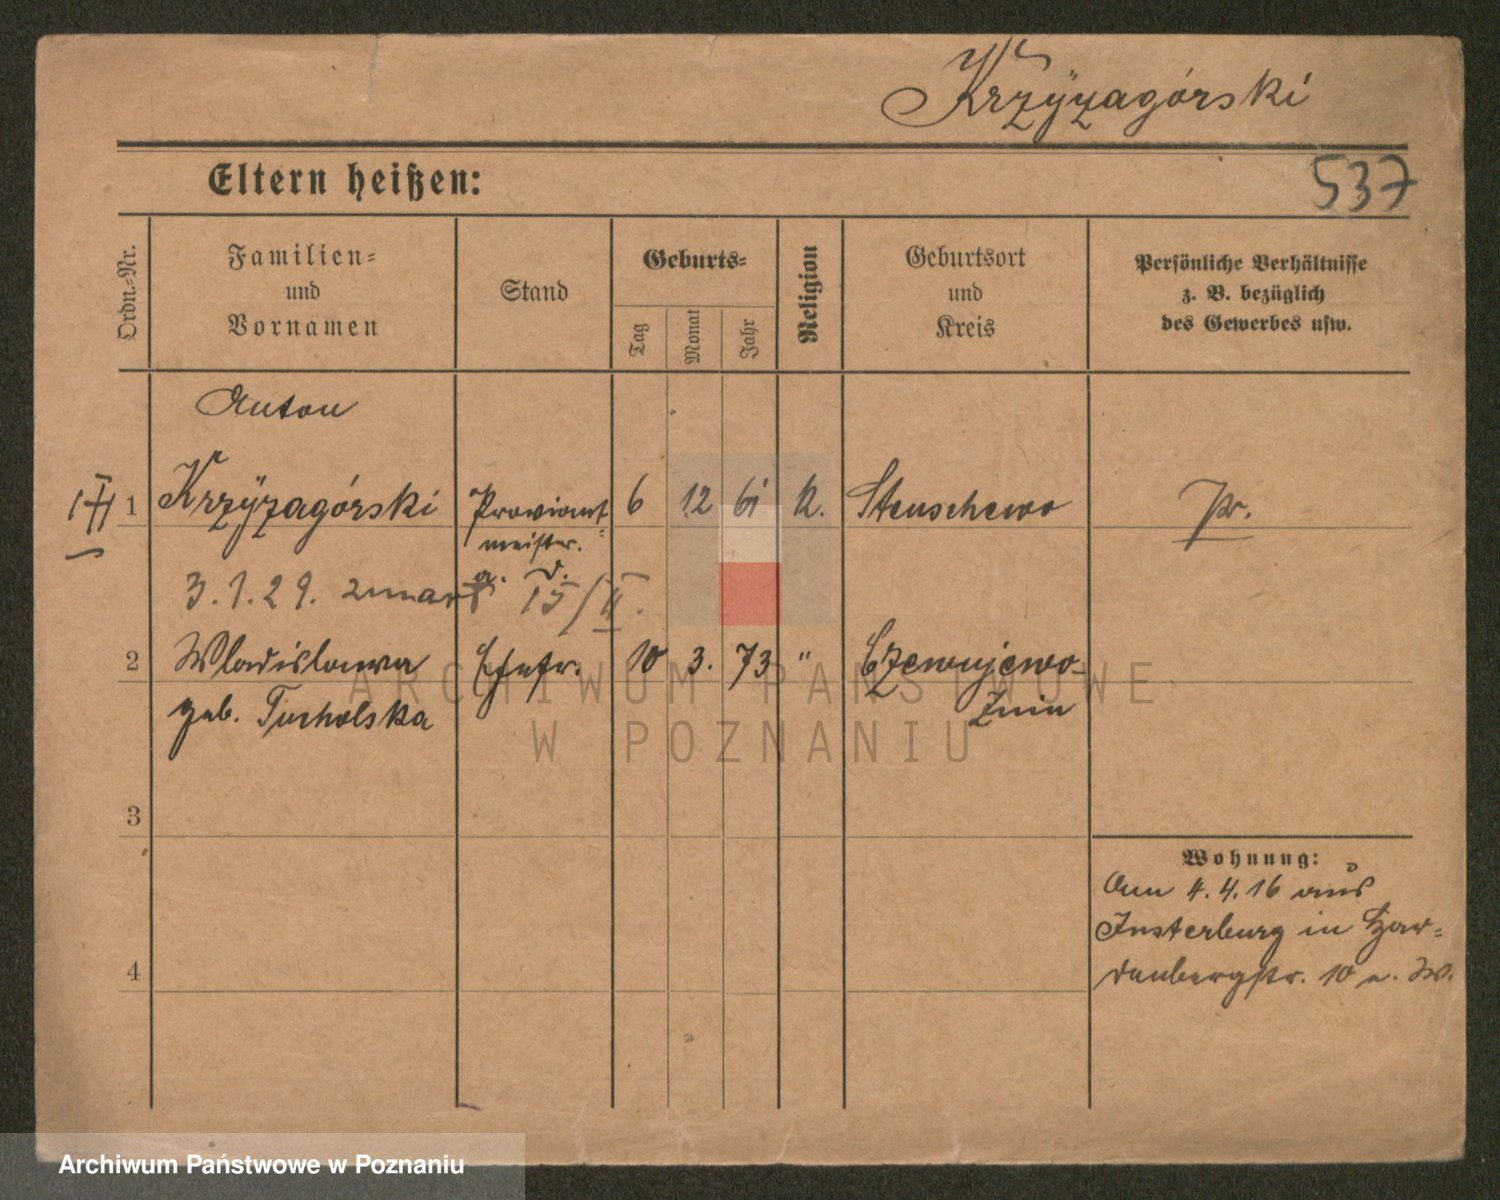 Krzÿzagórski
537
Eltern heißen:
Ordn.-Nr.
Familien-
und
Vornamen
Stand
Geburts-
Tag
Monat
Jahr
Religion
Geburtsort
und
Kreis
Persönliche Verhältnisse
z. B. bezüglich
des Gewerbes usw.
Anton
1 Krzÿzagórski Proviant- 6 12 61 K. Stenschewo Pr.
meister.
a. D.
3.1.29. zmarł 15/II.
2 Wladislawa Ehefr. 10 3. 73 " Czewujewo-
geb. Tucholska Znin
3
4
Wohnung:
Am 4.4.16 aus
Insterburg in Har-
denbergstr. 10 e. W.
ARCHIWUM PAŃSTWOWE
W POZNANIU
Archiwum Państwowe w Poznaniu